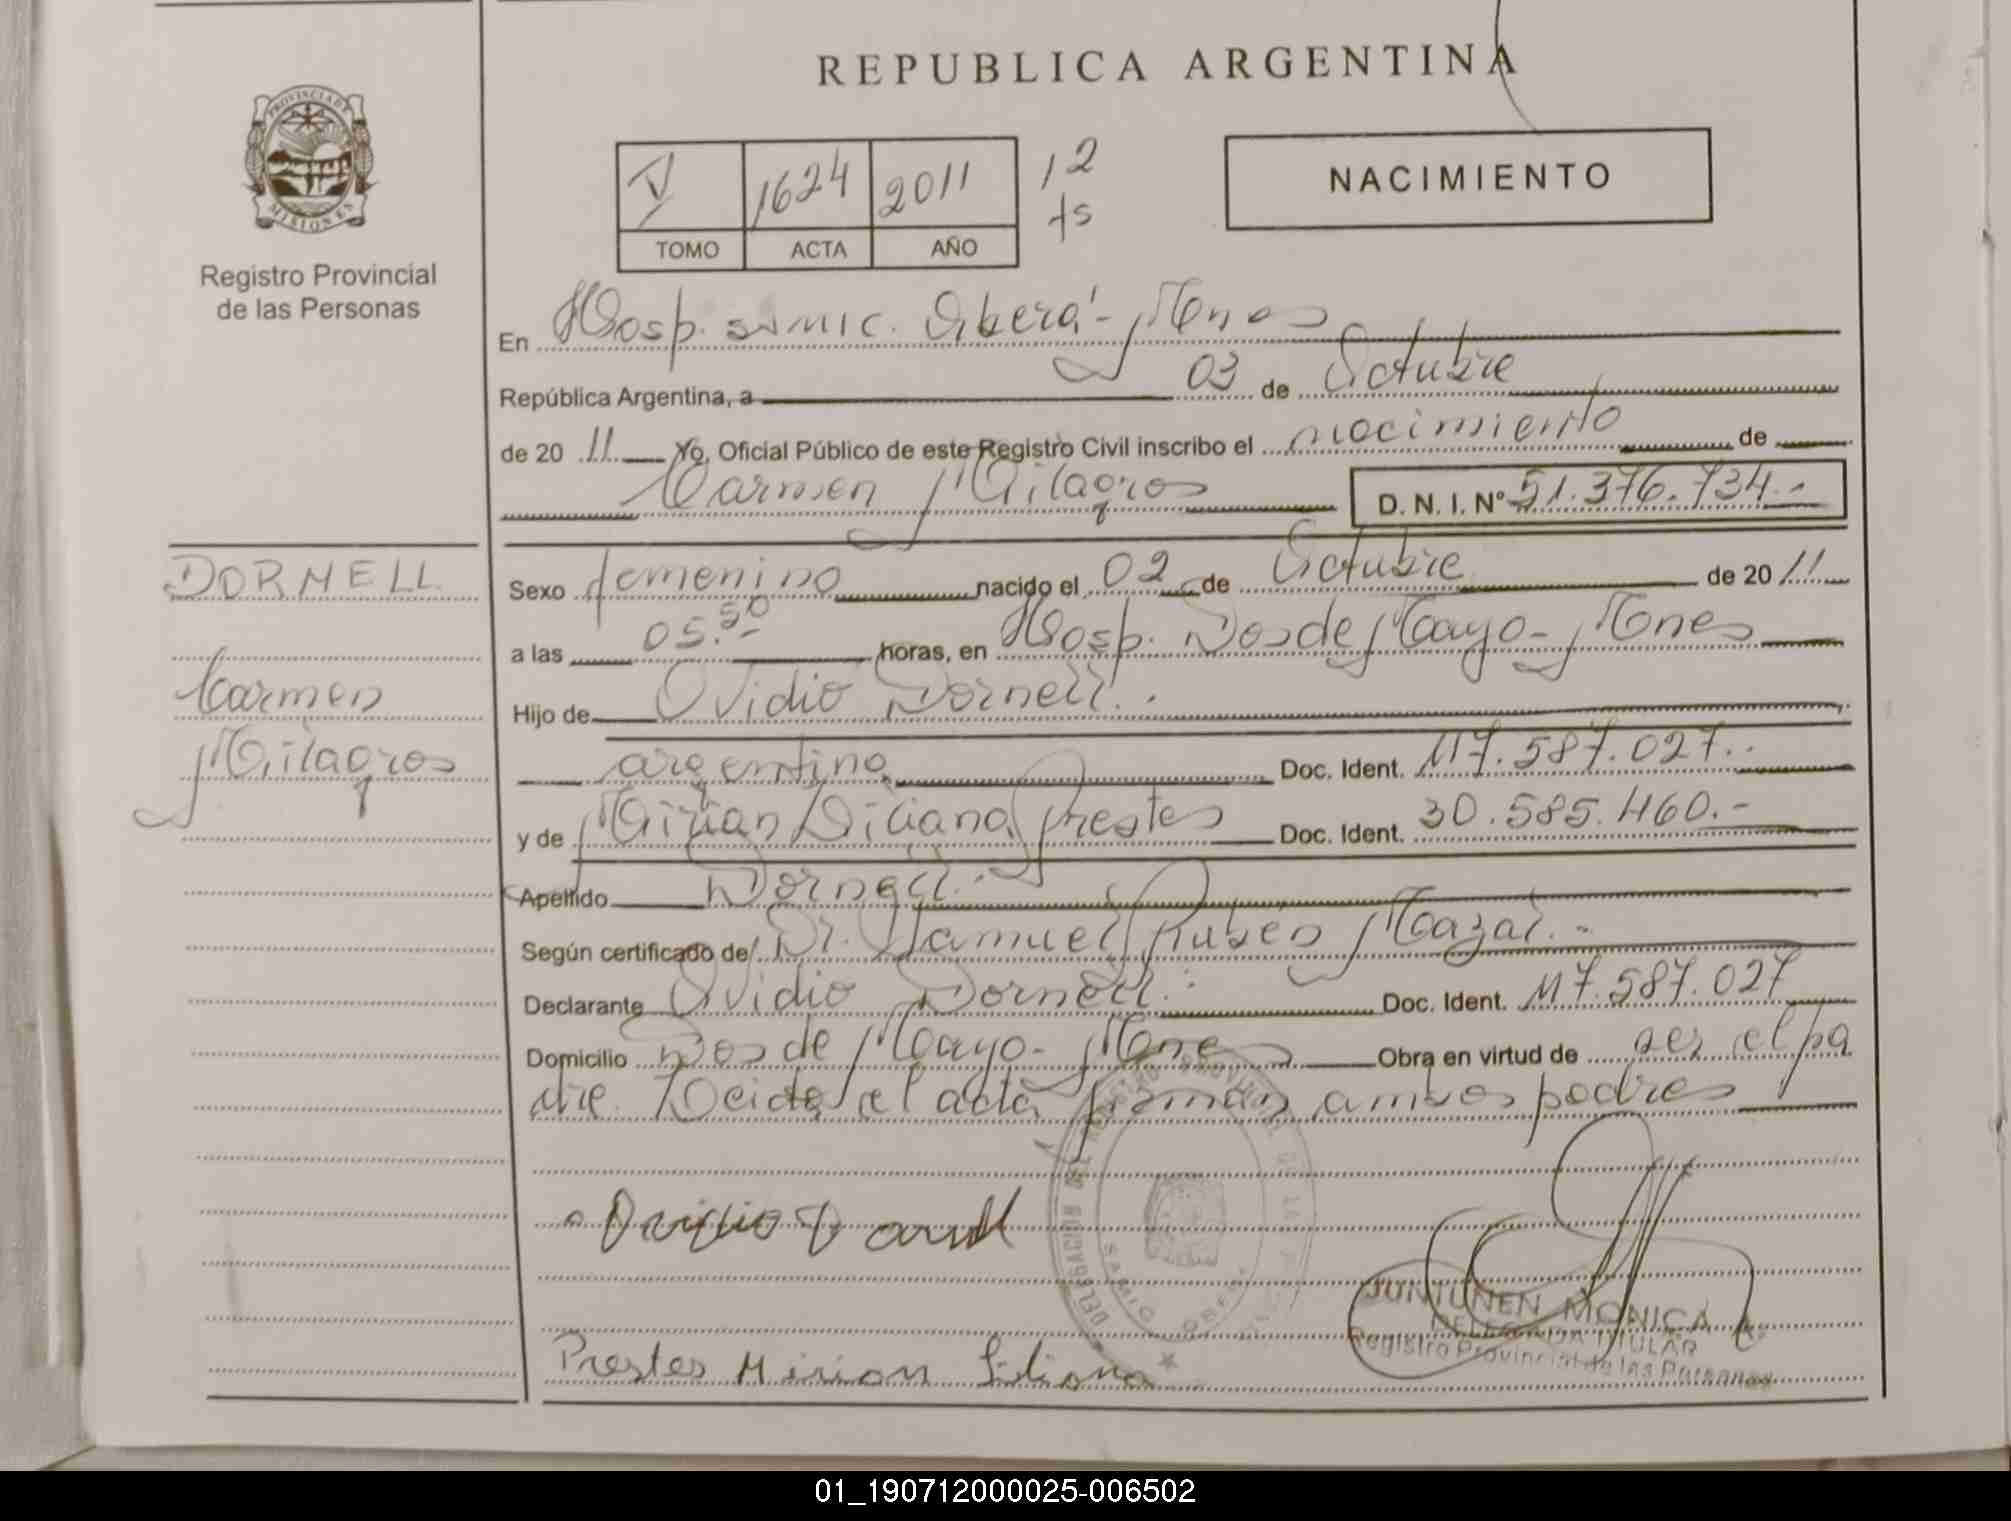 REPUBLICA ARGENTINA
PROVINCIA DE
MISIONES
Registro Provincial
de las Personas
V 1624 2011 12
TOMO ACTA AÑO
NACIMIENTO
En Hosp. SAMIC. Oberá - Mnes
República Argentina, a 03 de Octubre
de 20 11 Yo, Oficial Público de este Registro Civil inscribo el nacimiento de
Carmen Milagros D. N. I. Nº 51.376.734.-
DORNELL
Carmen
Milagros
Sexo femenino nacido el 02 de Octubre de 20 11
a las 05.50 horas, en Hosp. Dos de Mayo - Mnes
Hijo de Ovidio Dornell.
argentino Doc. Ident. 17.587.027.-
y de Mirian Liliana Prestes Doc. Ident. 30.585.460.-
Apellido Dornell.-
Según certificado de Dr. Samuel Ruben
Declarante Ovidio Dornell.- Doc. Ident. 17.587.027
Domicilio Dos de Mayo - Mnes Obra en virtud de ser el pa
dre. Leida el acta firman ambos padres
Prestes Mirian Liliana
JUNTUNEN MONICA
DELEGADA TITULAR
Registro Provincial de las Personas
01_190712000025-006502